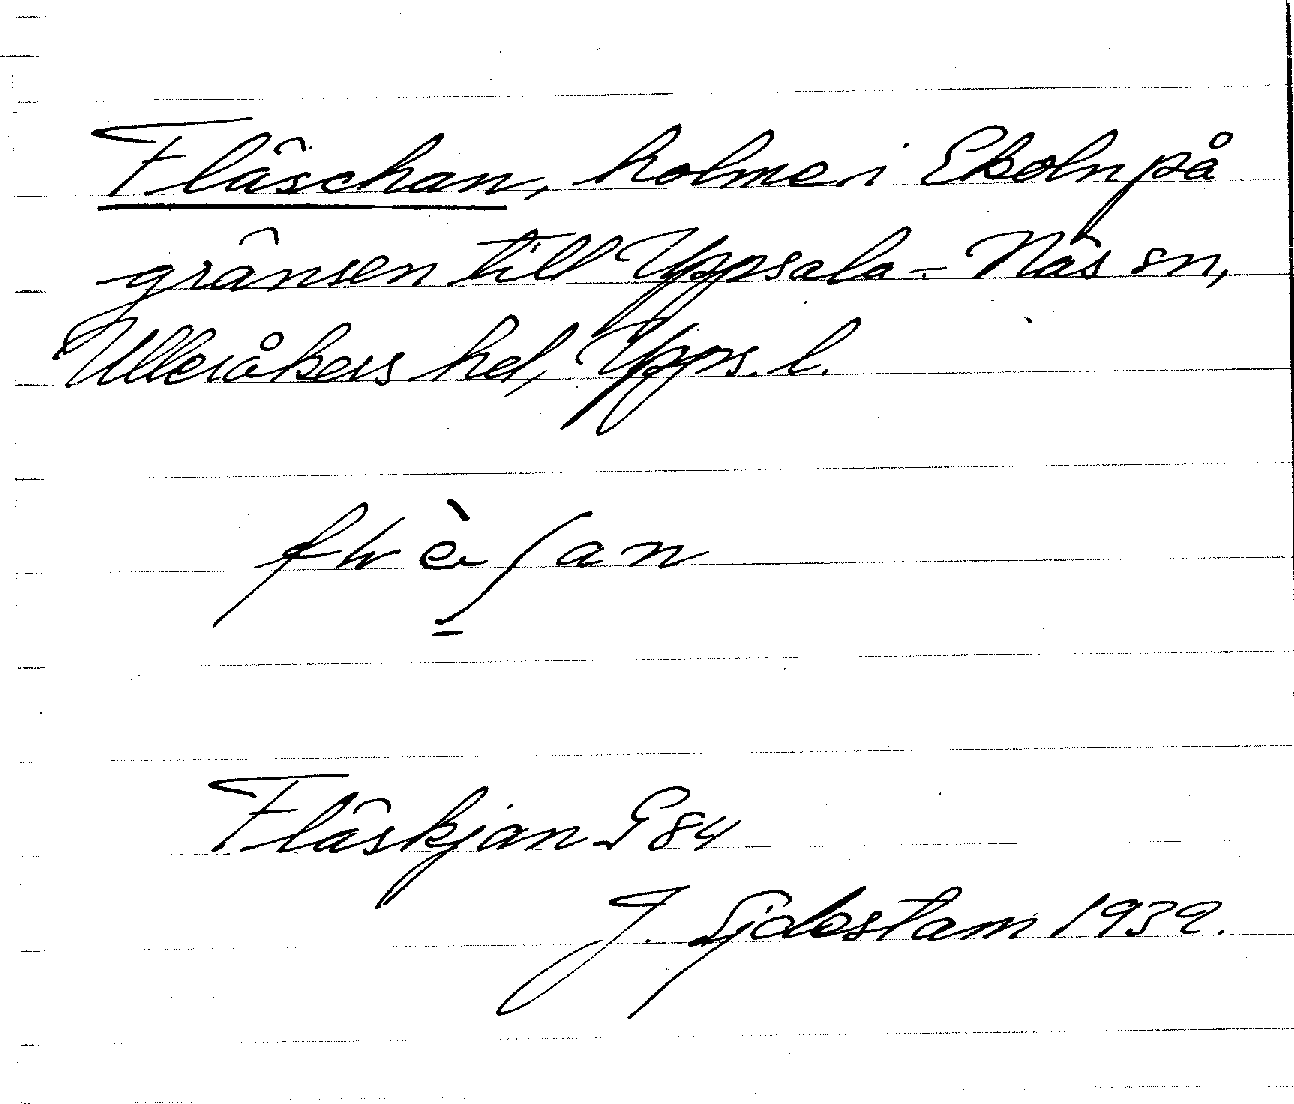 Fläschan, holme i Ekoln på
gränsen till Uppsala-Näs sn,
Ulleråkers hd, Upps. l.
Fläskjan G 84
J. Sjdestam 1939.